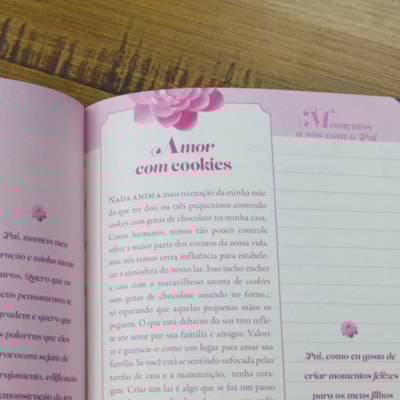 Pai, momem meu
oração e minha mene
uros. Quero que os
eus pensamentos te
gradem e quero que
palavras que eles
rovocam sejam de
rajamento, edificação
demonstração do teu
Amor
com cookies
NADA ANIMA mais o coração da minha mãe
do que ter dois ou três pequeninos comendo
cookies com gotas de chocolate na minha casa.
Como humanos, temos tão pouco controle
sobre a maior parte dos eventos da nossa vida,
mas nós temos certa influência para estabele-
cer a atmosfera do nosso lar. Isso inclui encher
a casa com o maravilhoso aroma de cookies
com gotas de chocolate assando no forno...
só esperando que aquelas pequenas mãos os
peguem. O que está debaixo do seu teto refle-
te seu amor por sua família e amigos. Valori-
ze e gerencie-o como um lugar para amar sua
família. Se você está se sentindo sufocada pelas
tarefas de casa e a manutenção, tenha cora-
gem. Criar um lar é algo que se faz um passo
Momentos
a sós com o Pai
Pai, como eu gosto de
criar momentos felizes
para os meus filhos